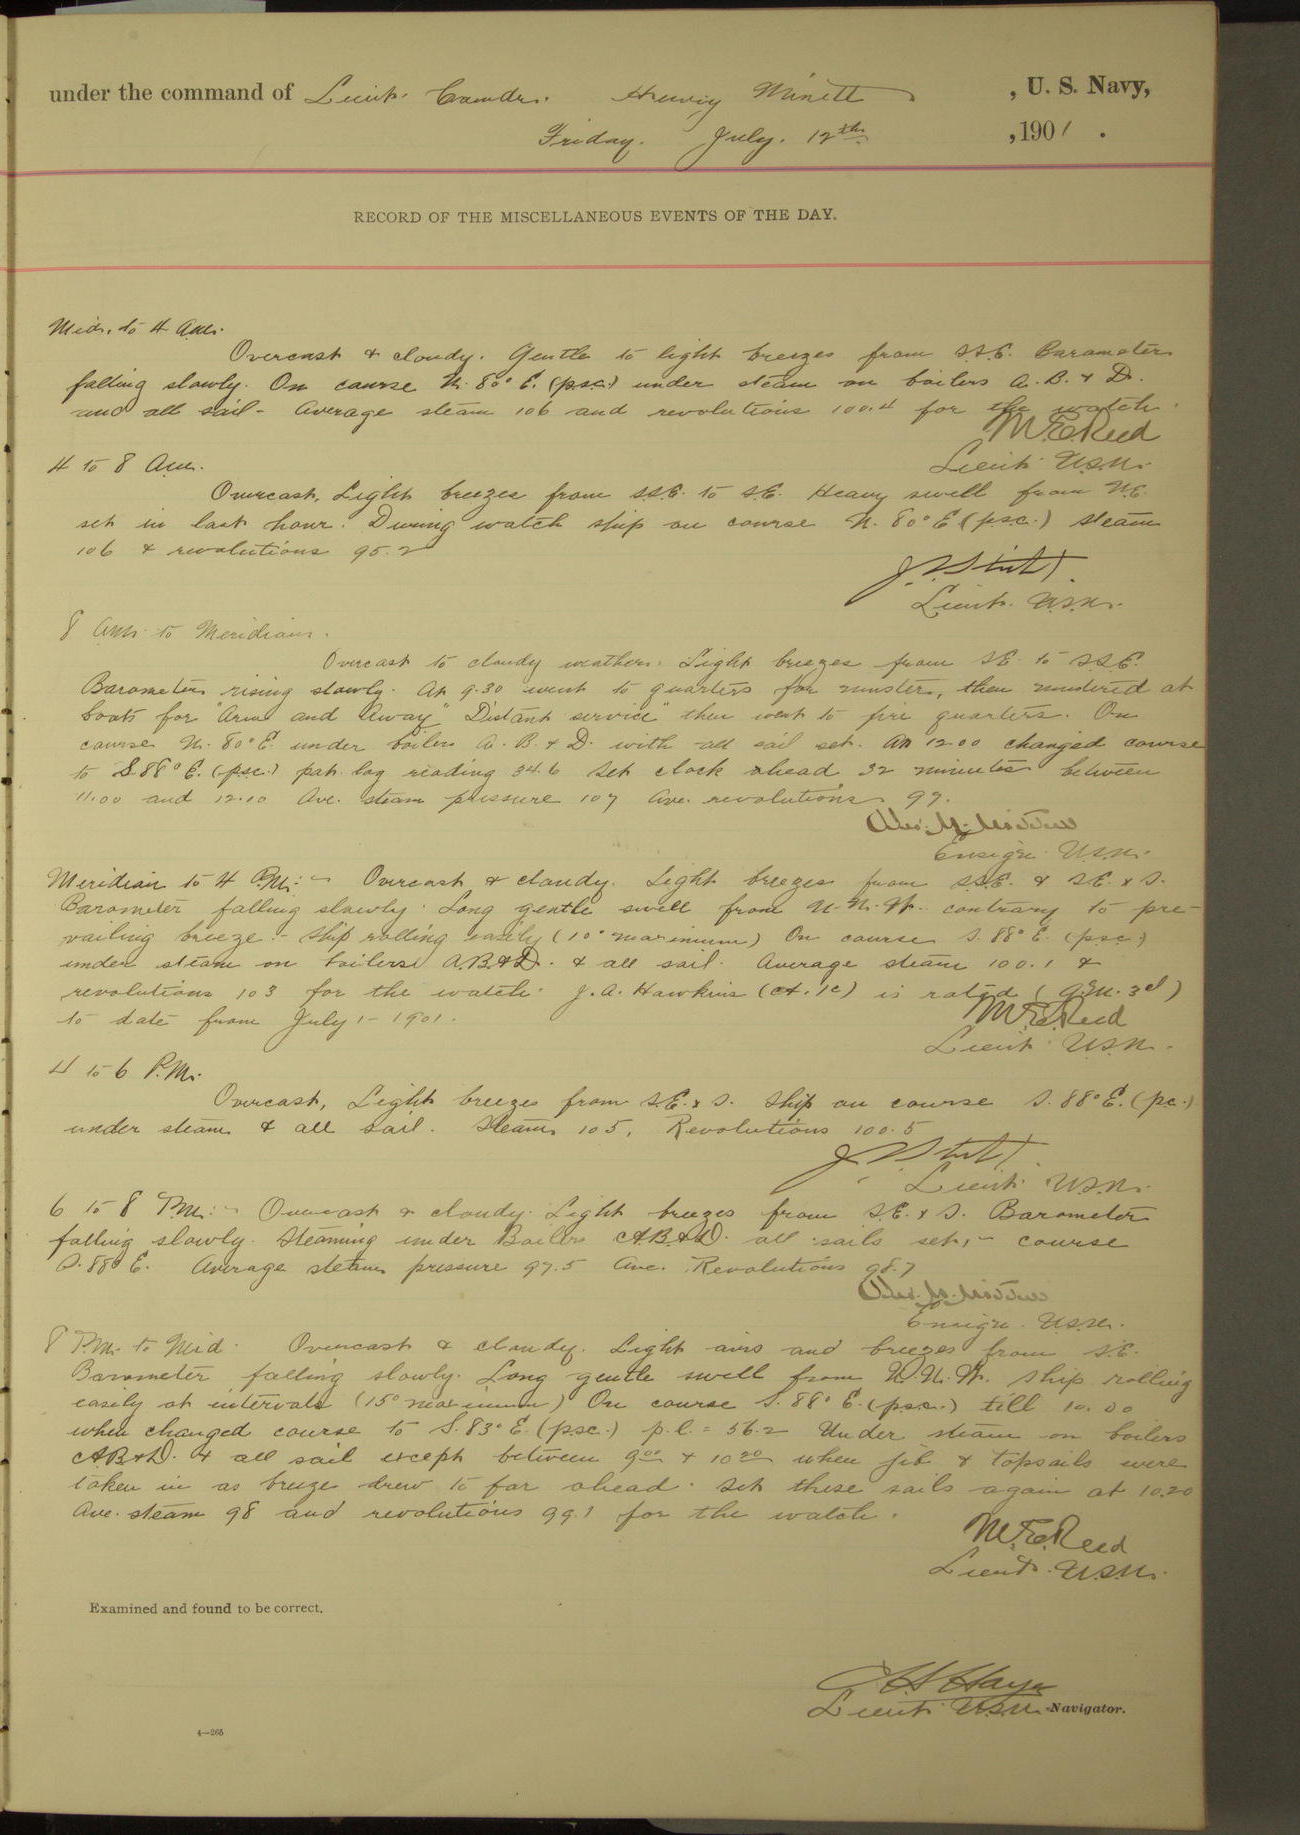 under the command of Lieut. Comdr. Henry Minett, U. S. Navy,
Friday. July. 12th, 1901.
RECORD OF THE MISCELLANEOUS EVENTS OF THE DAY.
Mid. to 4 A.M.
Overcast & cloudy. Gentle to light breezes from S.S.E. Barometer
falling slowly. On course N. 80° E. (p.s.c.) under steam on boilers A. B. & D.
and all sail - Average steam 106 and revolutions 100.4 for the watch.
M.E. Reed
Lieut. U.S.N.
4 to 8 A.M.
Overcast, Light breezes from SSE. to S.E. Heavy swell from N.E.
set in last hour. During watch ship on course N. 80° E (p.s.c.) steam
106 & revolutions 95.2
Lieut. U.S.N.
8 A.M. to Meridian.
Overcast to cloudy weather. Light breezes from SE. to S.S.E.
Barometer rising slowly. At 9.30 went to quarters for muster, then mustered at
boats for "Arm and Away" "Distant service" then went to fire quarters. On
course N. 80° E. under boilers A. B. & D. with all sail set. At 12.00 changed course
to S. 88° E. (p.s.c.) pat. log reading 34.6 Set clock ahead 32 minutes between
11.00 and 12.10 Ave. steam pressure 107 Ave. revolutions 97.
Ensign U.S.N.
Meridian to 4 P.M. :- Overcast & cloudy. Light breezes from S.S.E. & S.E. x S.
Barometer falling slowly. Long gentle swell from N.N.W. contrary to pre-
vailing breeze. - Ship rolling easily (10° maximum) On course S. 88° E. (psc.)
under steam on boilers A.B.&D. & all sail. Average steam 100.1 &
revolutions 103 for the watch. J. A. Hawkins (at. 1c) is rated (G.M. 3d)
to date from July 1 - 1901.
M.E. Reed
Lieut. U.S.N.
4 to 6 P.M.
Overcast, Light breezes from S.E. x S. Ship on course S. 88° E. (pc.)
under steam & all sail. Steam 105, Revolutions 100.5
Lieut. U.S.N.
6 to 8 P.M. :- Overcast & cloudy. Light breezes from S.E. x S. Barometer
falling slowly. Steaming under Boilers A.B.&D. all sails set, - course
S. 88° E. Average steam pressure 97.5 Ave. Revolutions 98.7
Ensign U.S.N.
8 P.M. to Mid. Overcast & cloudy. Light airs and breezes from S.E.
Barometer falling slowly. Long gentle swell from N.N.W. Ship rolling
easily at intervals (15° maximum) On course S. 88° E. (p.s.c.) till 10.00
when changed course to S. 83° E. (psc.) p.l. = 56.2 Under steam on boilers
A.B.&D. & all sail except between 9 00 & 10 20 when jib & topsails were
taken in as breeze drew to far ahead. Set these sails again at 10.20
Ave. steam 98 and revolutions 99.1 for the watch.
M.E. Reed
Lieut. U.S.N.
Examined and found to be correct.
Lieut. U.S.N. Navigator.
4—265